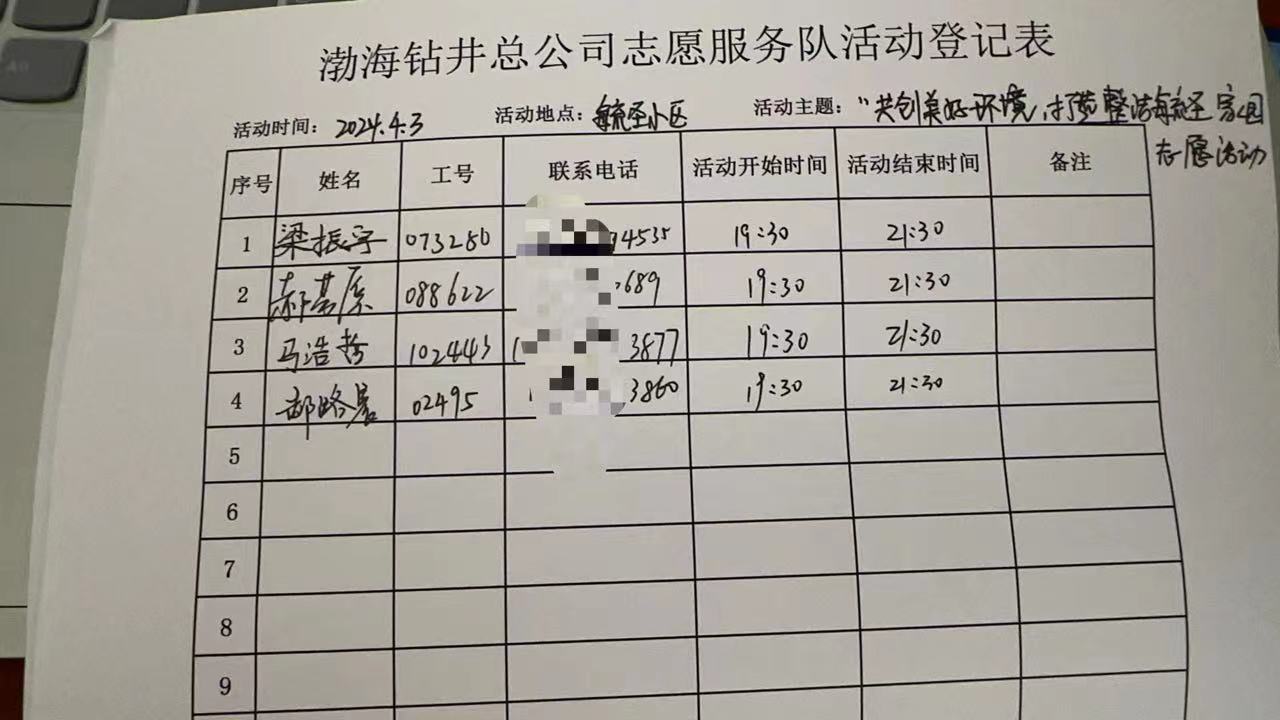 渤海钻井总公司志愿服务队活动登记表
活动时间: 2024.4.3 活动地点: 小区 活动主题: "共创美好环境,打造整洁 家园
志愿活动
序号 姓名 工号 联系电话 活动开始时间 活动结束时间 备注
1 梁振宇 073280 4535 19:30 21:30
2 郝 088622 689 19:30 21:30
3 马浩哲 102443 3877 19:30 21:30
4 02495 3860 19:30 21:30
5
6
7
8
9